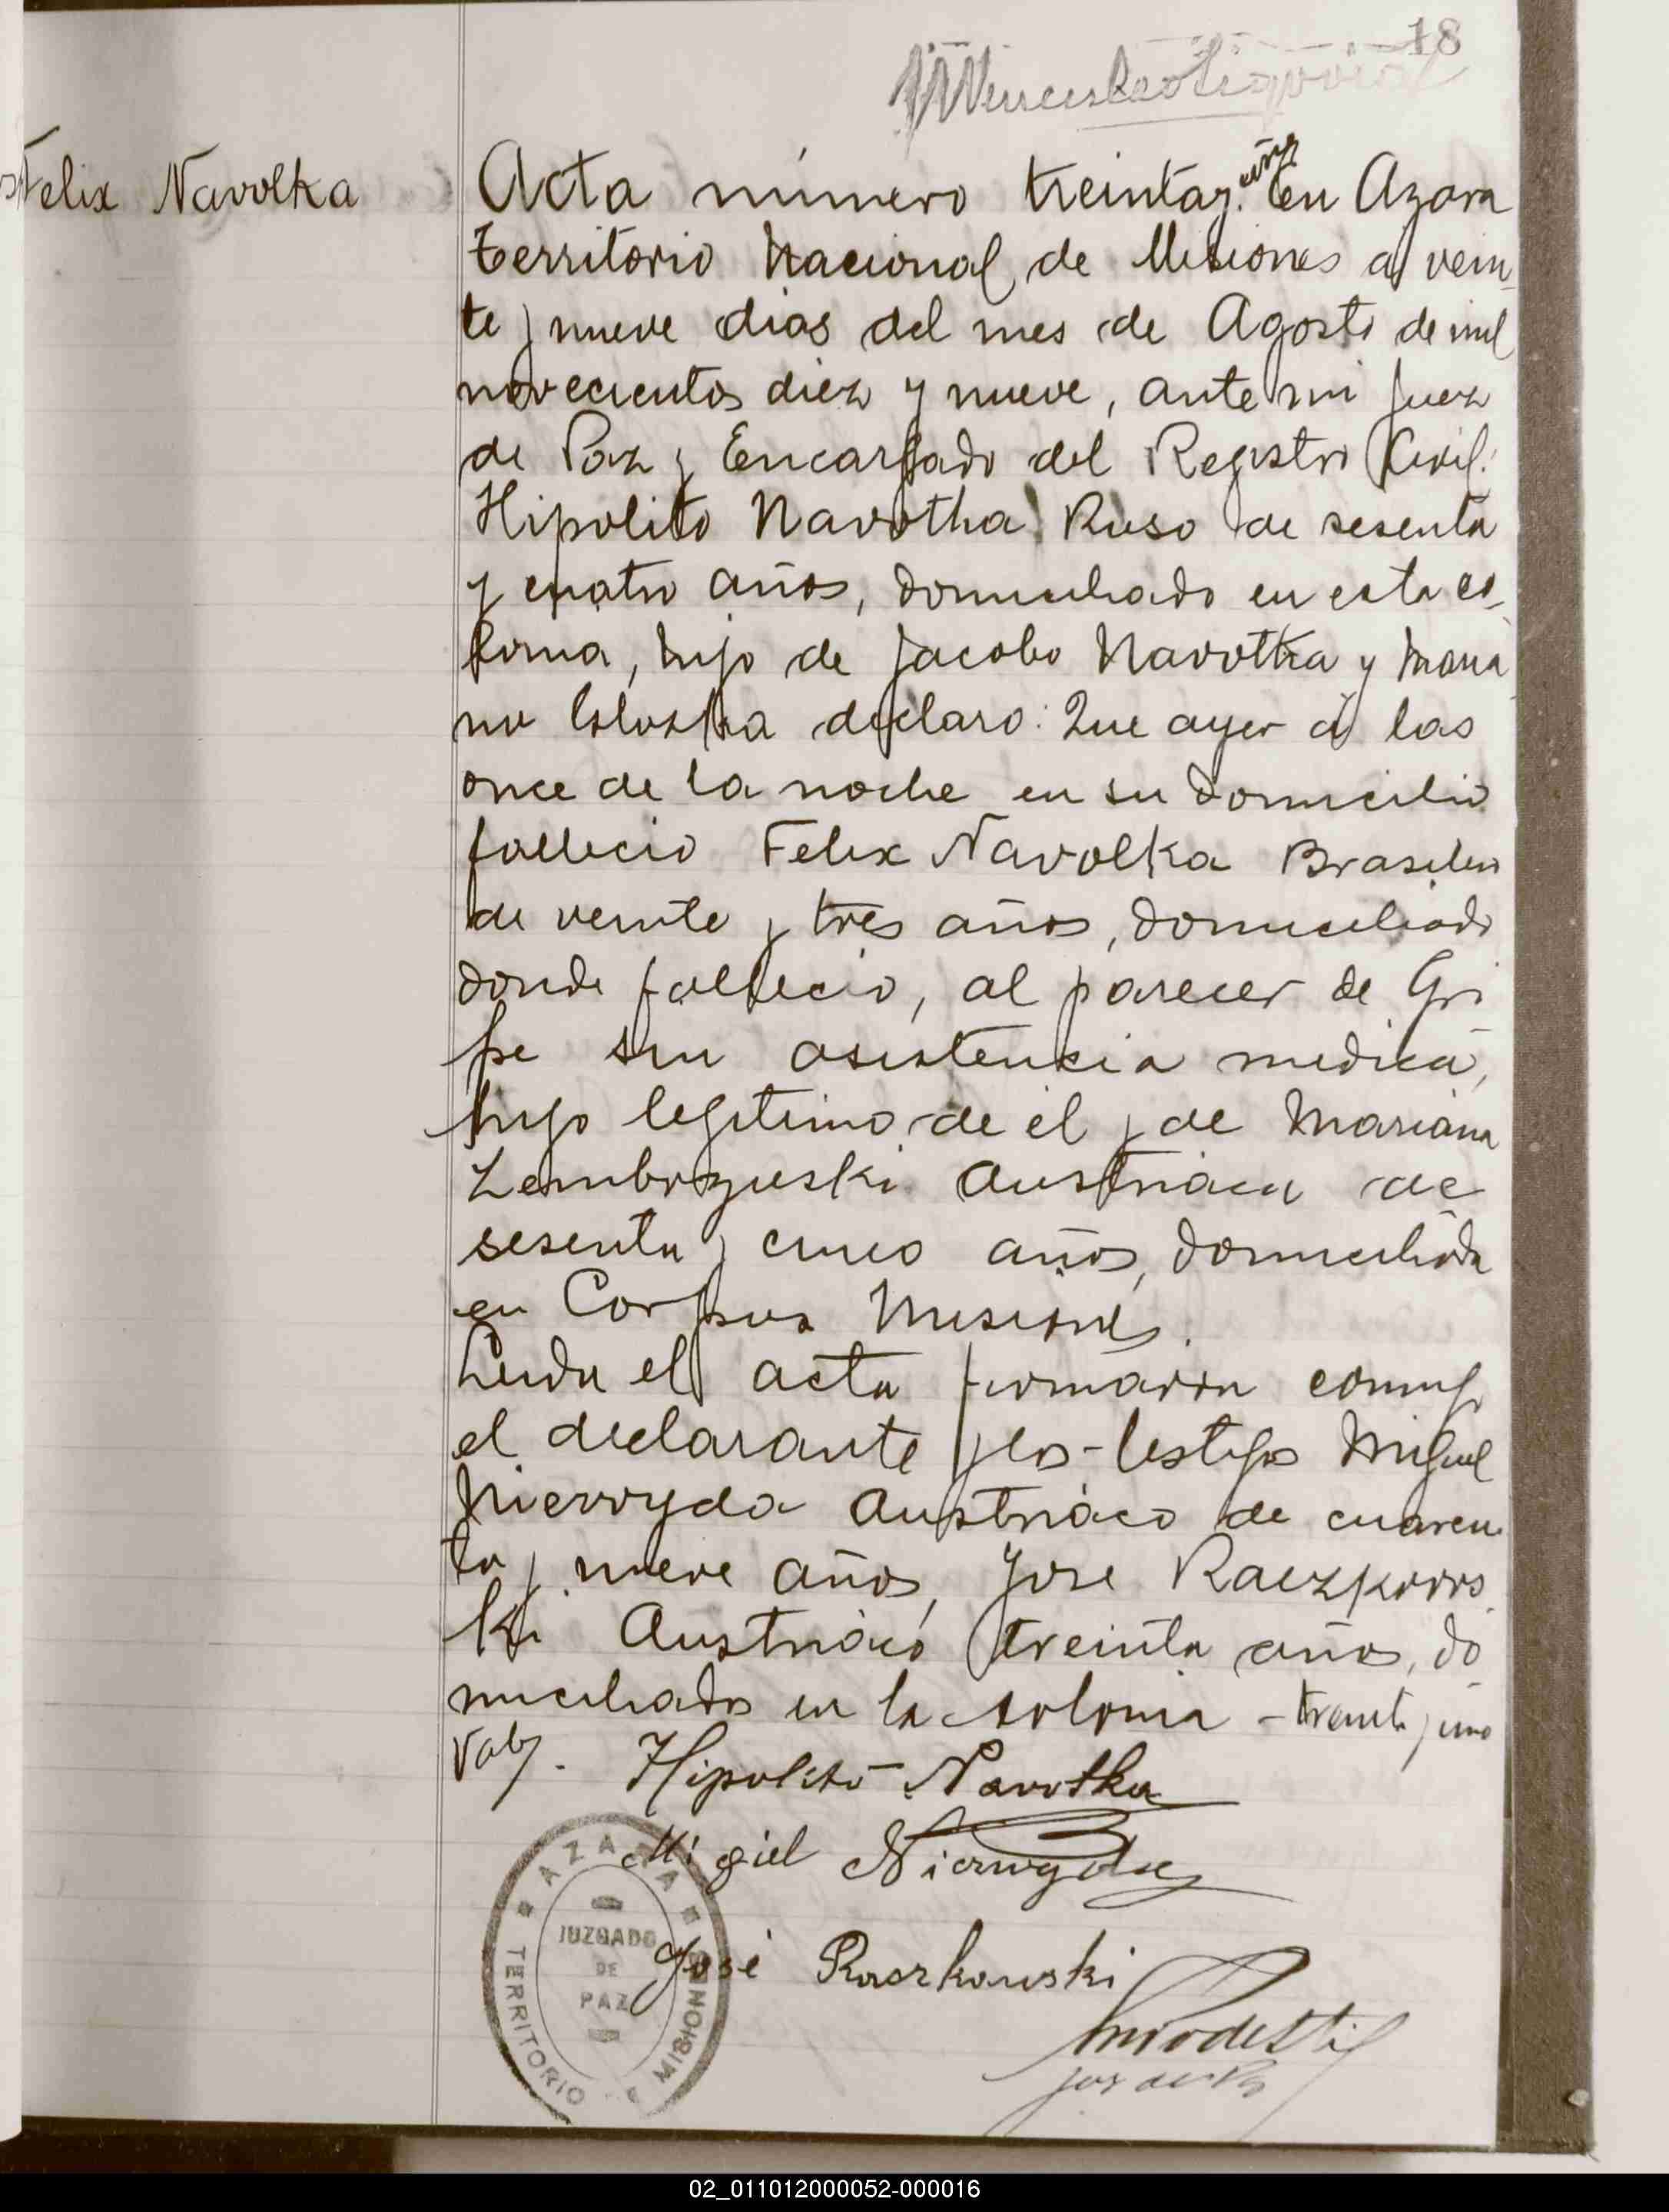 18
Felix Navolka
Acta número treinta y uno En Azara
territorio Nacional de Misiones a vein
te y nueve dias del mes de Agosto de mil
novecientos diez y nueve, ante mi Juez
de Paz y Encargado del Registro Civil:
Hipolito Navotka Ruso de sesenta
y cuatro años, domiciliado en esta co-
lonia, hijo de Jacobo Navotka y Maria
no declaro: Que ayer á las
once de la noche en su domicilio
fallecio Felix Navolka Brasilero
de veinte y tres años, domiciliado
donde fallecio, al parecer de Gri
pe sin asistencia medica,
hijo legitimo de el y de Mariana
Zembrzuski Austriaca de
sesenta y cinco años, domiciliada
en Corpus Misiones.
Leida el acta firmaron conmigo
el declarante y los testigos Miguel
Nierwyda Austriaco de cuaren
ta y nueve años, Jose Raczkows
ki Austriaco treinta años, do
miciliados en la colonia - treinta y uno
Vale. Hipolito Navotka
Migiel
José Raczkowski
AZARA
JUZGADO
DE
PAZ
TERRITORIO DE MISIONES
Juez de Paz
02_011012000052-000016